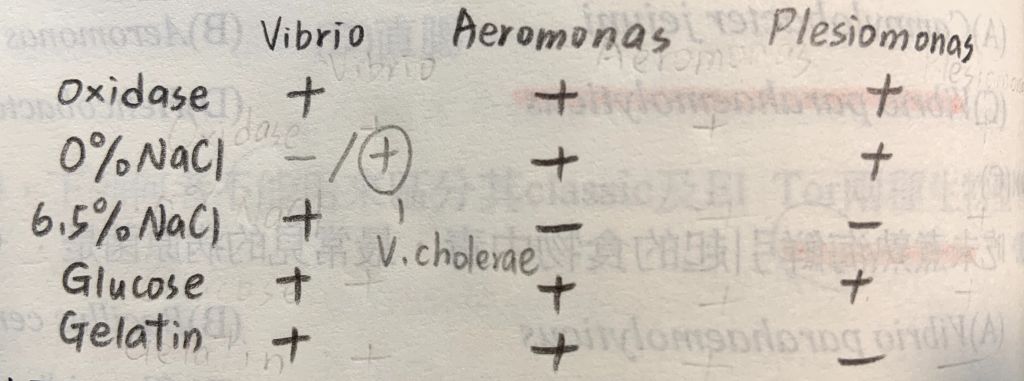 Vibrio Aeromonas Plesiomonas
Oxidase + + +
0% NaCl - / + + +
6.5% NaCl + - -
V. cholerae
Glucose + + +
Gelatin + + -